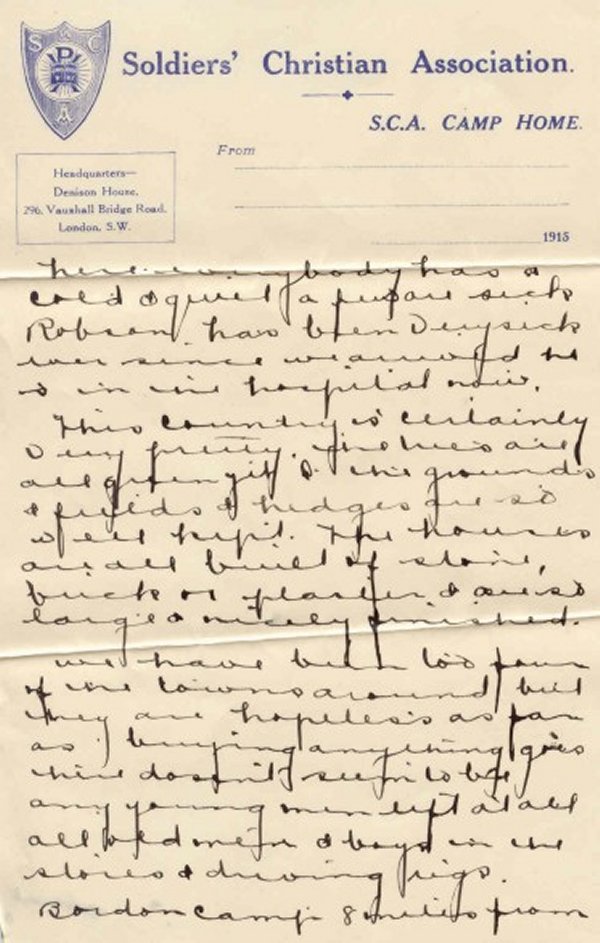 S C A
Soldiers' Christian Association.
S.C.A. CAMP HOME.
From
Headquarters—
Denison House,
296, Vauxhall Bridge Road,
London, S.W.
1915
here everybody has a
cold & quite a few are sick
Robson has been very sick
ever since we arrived he
is in the hospital now.
This country is certainly
very pretty. The trees are
all green yet & the grounds
& fields & hedges are so
well kept. The houses
are all built of stone,
brick or plaster & are so
large & nicely finished.
We have been to four
of the towns around but
they are hopeless as far
as buying anything goes
there doesn't seem to be
any young men left at all
all old men & boys in the
stores & driving rigs.
Bordon camp 8 miles from